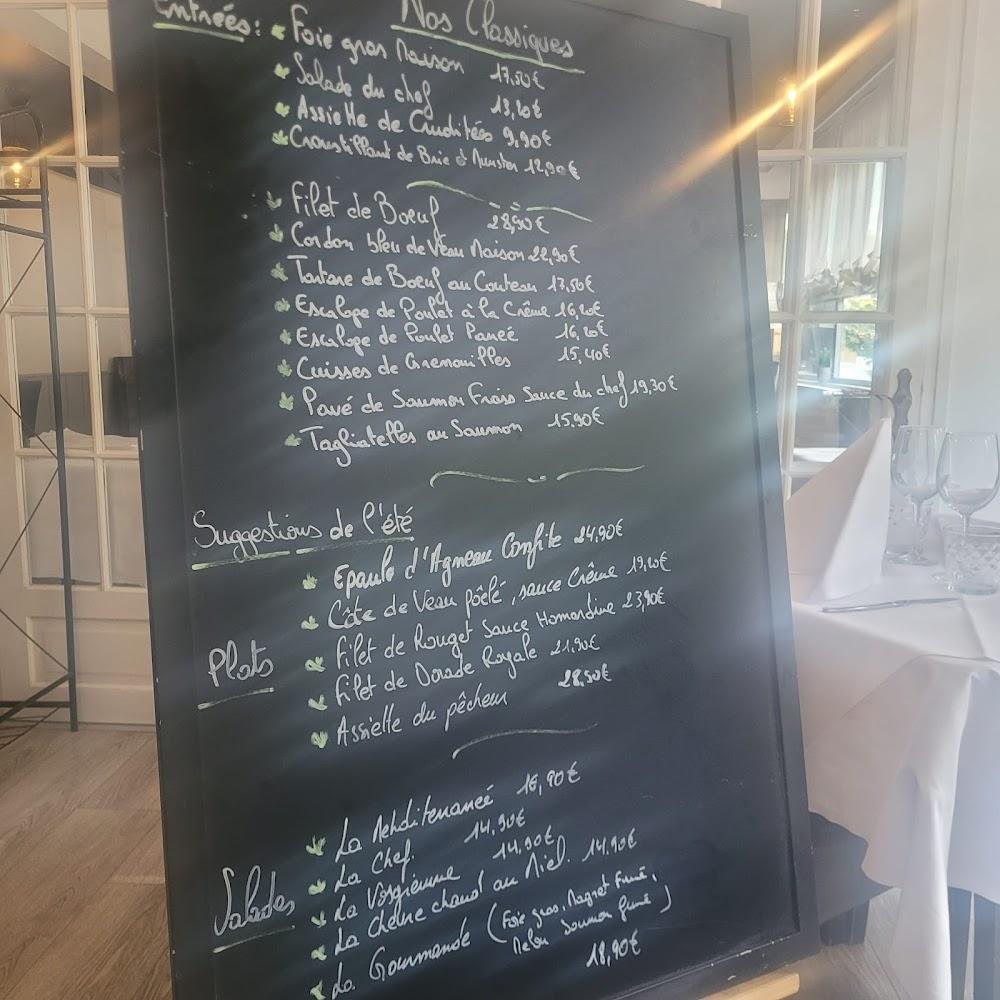 Nos Classiques
Entrées :
Foie gras Maison 17,50€
Salade du chef 13,20€
Assiette de Crudités 9,90€
Croustillant de Brie et Munster 12,90€
Filet de Boeuf 28,90€
Cordon bleu de Veau Maison 22,90€
Tartare de Boeuf au Couteau 17,50€
Escalope de Poulet à la Crême 16,20€
Escalope de Poulet Paneé 16,20€
Cuisses de Grenouilles 15,40€
Pavé de Saumon Frais Sauce du chef 19,30€
Tagliatelles au Saumon 15,90€
Suggestions de l'été
Epaule d'Agneau Confite 24,90€
Côte de Veau pôêlé, sauce Crême
Plats
Filet de Rouget Sauce Homardine 23,90€
Filet de Dorade Royale 21,90€
Assiette du pêcheur 28,50€
Salades
La Mehditenaneé 16,90€
La Chef. 14,90€
La Vosgienne 14,90€
La Chèvre chaud au Miel. 14,90€
La Gourmande (Foie gras, Magret Fumé,
Melon Saumon fumé)
18,90€